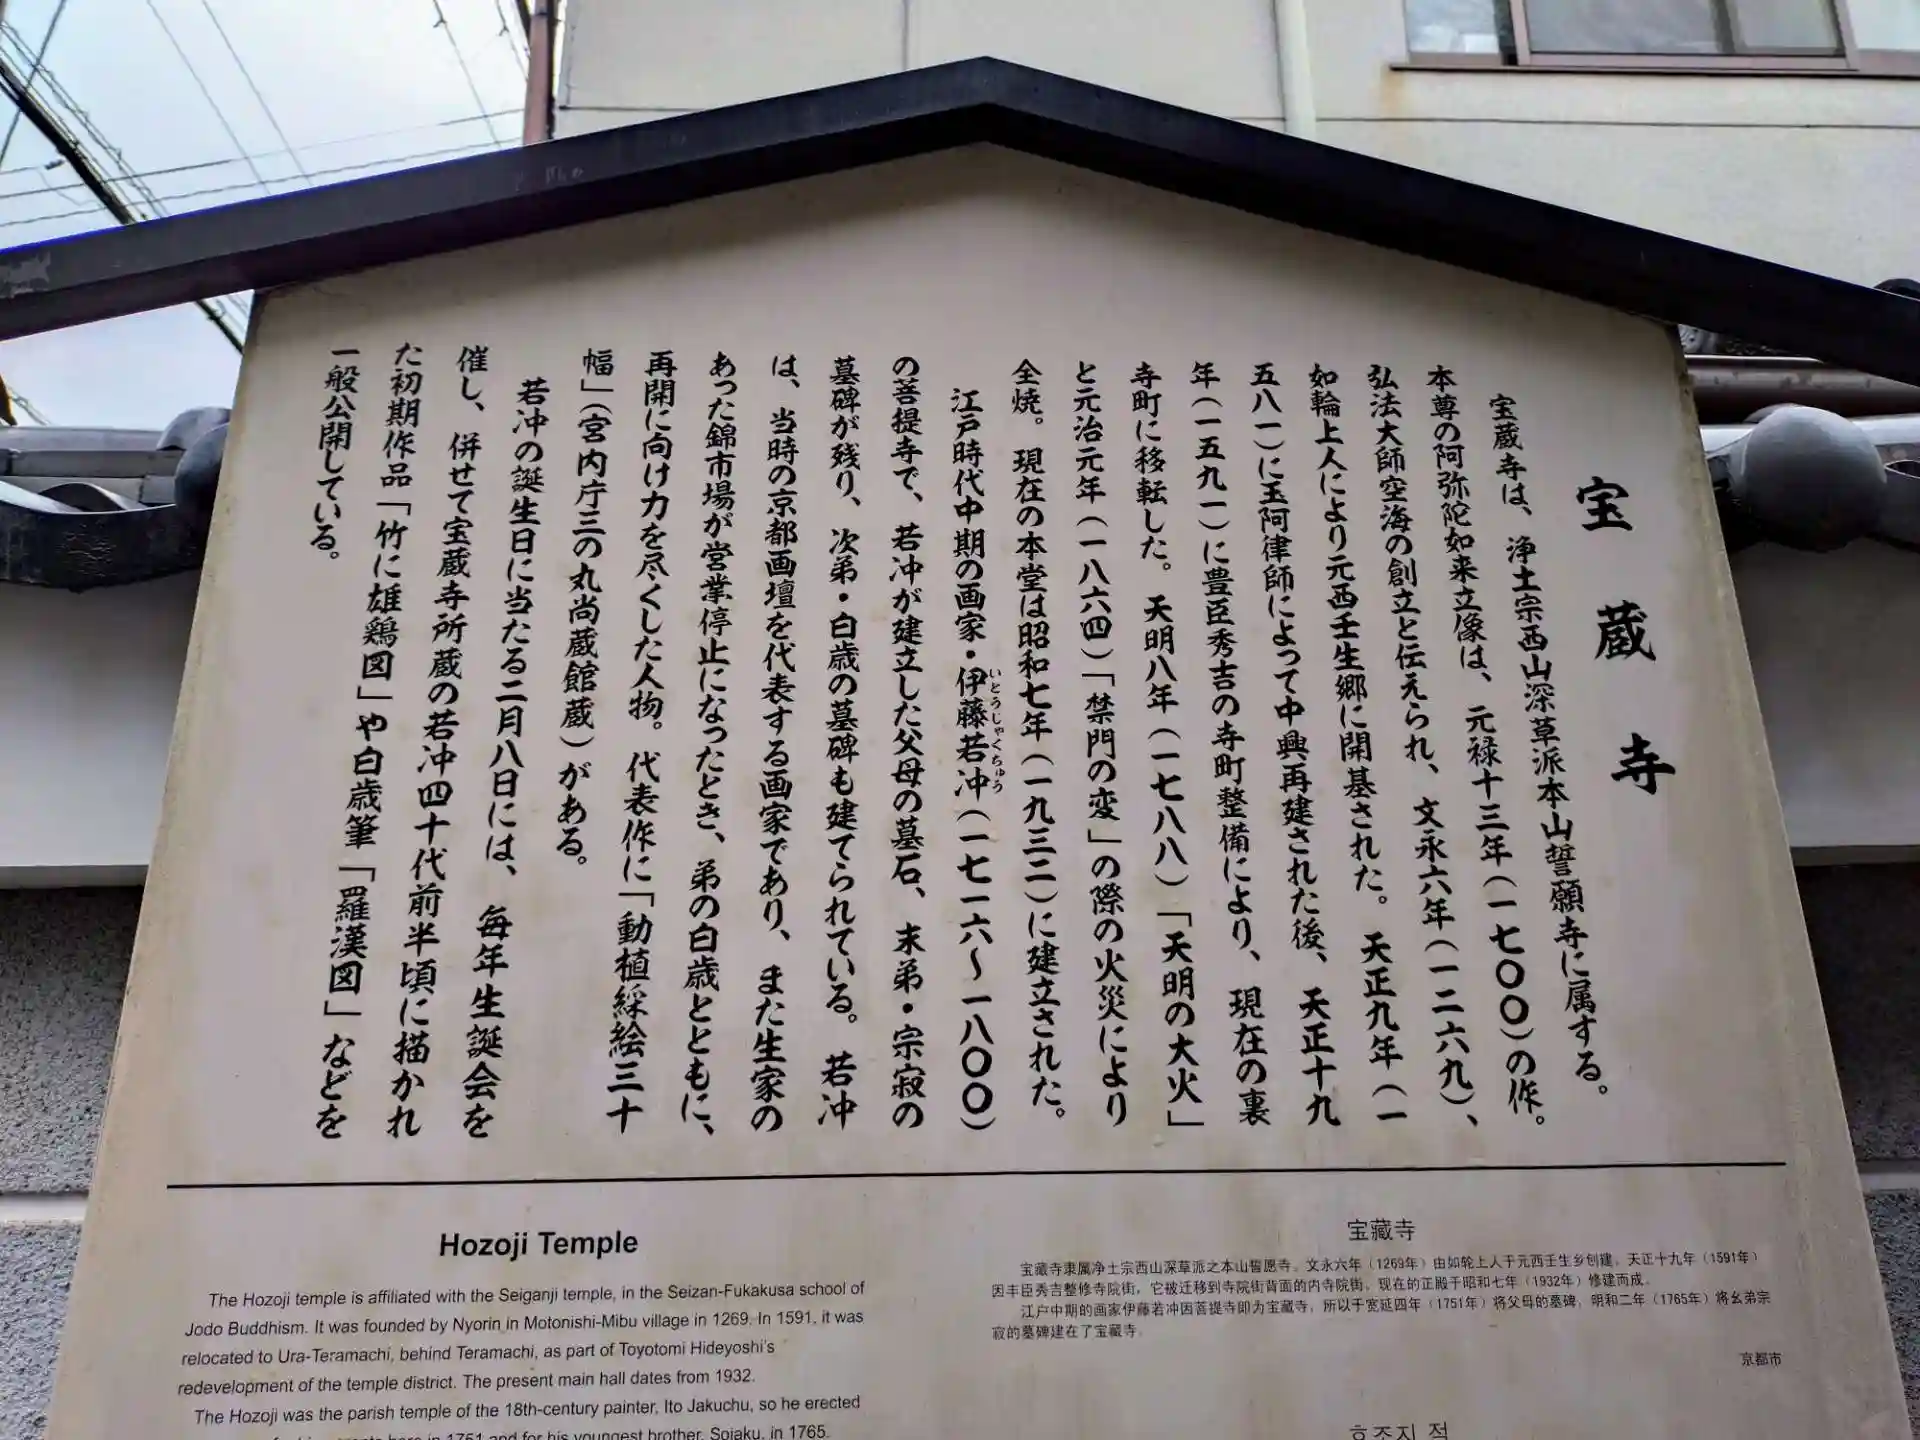 宝蔵寺
宝蔵寺は、浄土宗西山深草派本山誓願寺に属する。
本尊の阿弥陀如来立像は、元禄十三年(一七〇〇)の作。
弘法大師空海の創立と伝えられ、文永六年(一二六九)、
如輪上人により元西壬生郷に開基された。天正九年(一
五八一)に玉阿律師によって中興再建された後、天正十九
年(一五九一)に豊臣秀吉の寺町整備により、現在の裏
寺町に移転した。天明八年(一七八八)「天明の大火」
と元治元年(一八六四)「禁門の変」の際の火災により
全焼。現在の本堂は昭和七年(一九三二)に建立された。
江戸時代中期の画家・伊藤若冲(一七一六〜一八〇〇)
いとうじゃくちゅう
の菩提寺で、若冲が建立した父母の墓石、末弟・宗寂の
墓碑が残り、次弟・白歳の墓碑も建てられている。若冲
は、当時の京都画壇を代表する画家であり、また生家の
あった錦市場が営業停止になったとき、弟の白歳とともに、
再開に向け力を尽くした人物。代表作に「動植綵絵三十
幅」(宮内庁三の丸尚蔵館蔵)がある。
若冲の誕生日に当たる二月八日には、毎年生誕会を
催し、併せて宝蔵寺所蔵の若冲四十代前半頃に描かれ
た初期作品「竹に雄鶏図」や白歳筆「羅漢図」などを
一般公開している。
Hozoji Temple
The Hozoji temple is affiliated with the Seiganji temple, in the Seizan-Fukakusa school of
Jodo Buddhism. It was founded by Nyorin in Motonishi-Mibu village in 1269. In 1591, it was
relocated to Ura-Teramachi, behind Teramachi, as part of Toyotomi Hideyoshi's
redevelopment of the temple district. The present main hall dates from 1932.
The Hozoji was the parish temple of the 18th-century painter, Ito Jakuchu, so he erected
here in 1751 and for his youngest brother, Sojaku, in 1765.
宝藏寺
宝藏寺隶属净土宗西山深草派之本山誓愿寺。文永六年（1269年）由如轮上人于元西壬生乡创建。天正十九年（1591年）
因丰臣秀吉整修寺院街，它被迁移到寺院街背面的内寺院街。现在的正殿于昭和七年（1932年）修建而成。
江户中期的画家伊藤若冲因菩提寺即为宝藏寺，所以于宽延四年（1751年）将父母的墓碑，明和二年（1765年）将幺弟宗
寂的墓碑建在了宝藏寺。
京都市
호조지 절